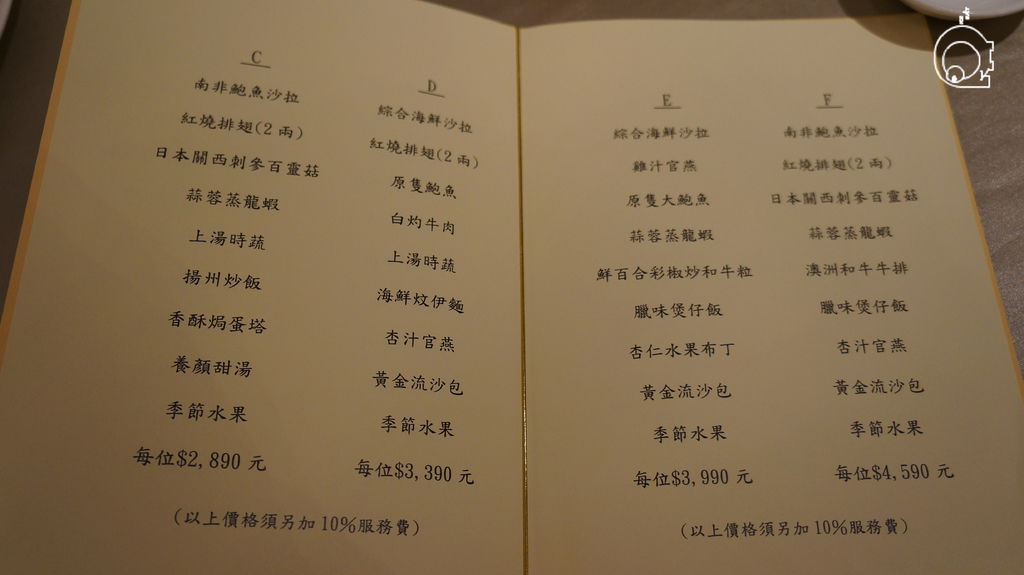 C
南非鮑魚沙拉
紅燒排翅(2 兩)
日本關西刺參百靈菇
蒜蓉蒸龍蝦
上湯時蔬
揚州炒飯
香酥焗蛋塔
養顏甜湯
季節水果
每位$2,890 元
D
綜合海鮮沙拉
紅燒排翅(2 兩)
原隻鮑魚
白灼牛肉
上湯時蔬
海鮮炆伊麵
杏汁官燕
黃金流沙包
季節水果
每位$3,390 元
(以上價格須另加 10%服務費)
E
綜合海鮮沙拉
雞汁官燕
原隻大鮑魚
蒜蓉蒸龍蝦
鮮百合彩椒炒和牛粒
臘味煲仔飯
杏仁水果布丁
黃金流沙包
季節水果
每位$3,990 元
F
南非鮑魚沙拉
紅燒排翅(2 兩)
日本關西刺參百靈菇
蒜蓉蒸龍蝦
澳洲和牛牛排
臘味煲仔飯
杏汁官燕
黃金流沙包
季節水果
每位$4,590 元
(以上價格須另加 10%服務費)